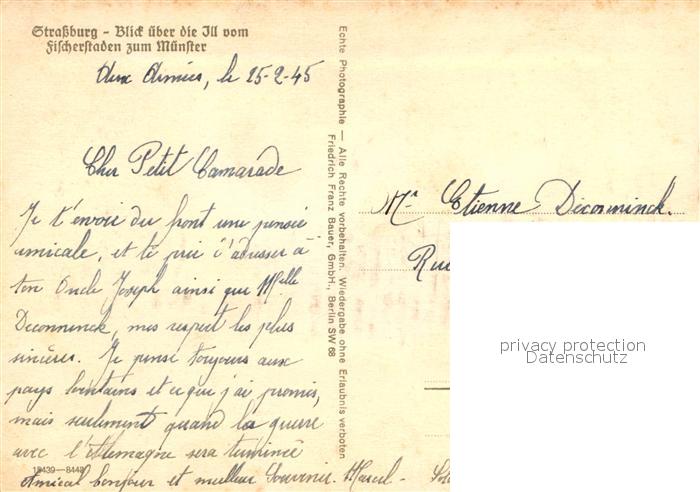 Straßburg - Blick über die Ill vom
Fischerstaden zum Münster
Aux Armées, le 25-2-45
Cher Petit Camarade
Je t'envoie du front une pensée
amicale, et te prie d'adresser à
ton Oncle Joseph ainsi que Melle
Deconninck, mes respect les plus
sincères. Je pense toujours aux
pays lointains et ce que j'ai promis,
mais seulement quand la guerre
avec l'Allemagne sera terminée
Amical bonjour et meilleur Souvenir. Marcel -
Echte Photographie — Alle Rechte vorbehalten. Wiedergabe ohne Erlaubnis verboten
Friedrich Franz Bauer, GmbH., Berlin SW 68
Mr Etienne Deconninck.
Rue
privacy protection
Datenschutz